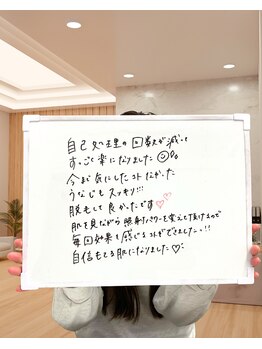 自己処理の回数が減って
すっごく楽になりました
今まで気にしたコトなかった
うなじもスッキリ!!!
脱毛して良かったです♡♡
肌を見ながら照射パワーを変えて頂けるので
毎回効果を感じるコトができました…!!
自信もてる肌になりました♡